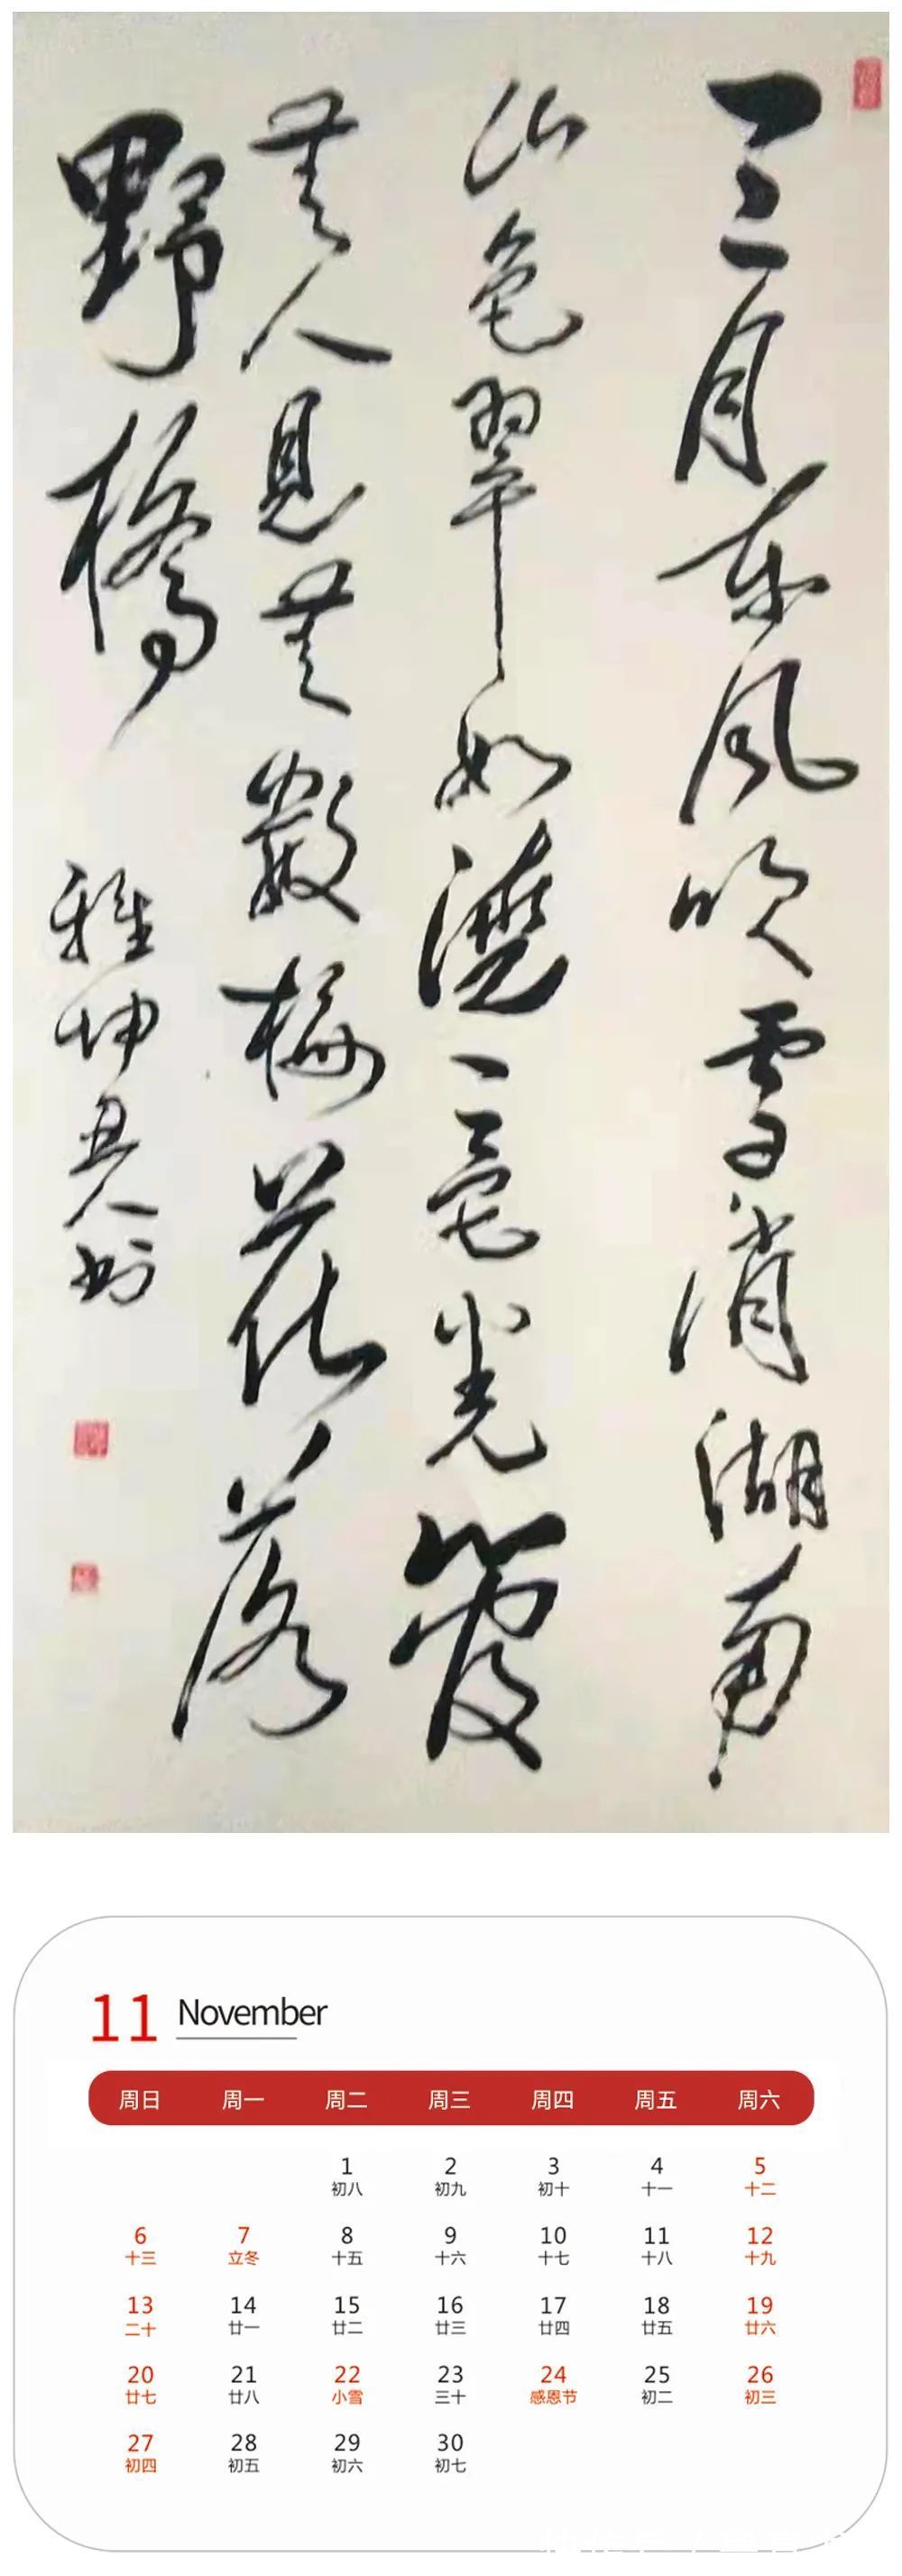 三月东风吹雪消湖南
山色翠如澆一声羌管
無人見無數梅花落
野橋
雅坤
11 November
周日 周一 周二 周三 周四 周五 周六
1 2 3 4 5
初八 初九 初十 十一 十二
6 7 8 9 10 11 12
十三 立冬 十五 十六 十七 十八 十九
13 14 15 16 17 18 19
二十 廿一 廿二 廿三 廿四 廿五 廿六
20 21 22 23 24 25 26
廿七 廿八 小雪 三十 感恩节 初二 初三
27 28 29 30
初四 初五 初六 初七